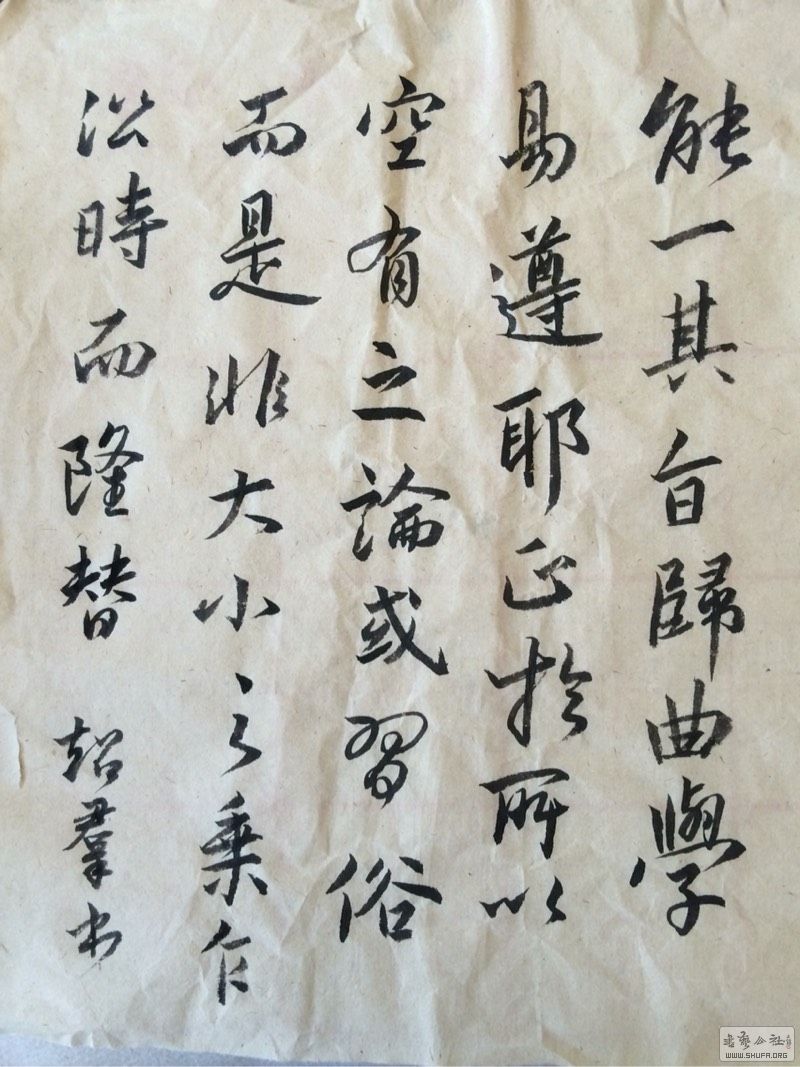 能一其旨歸曲學
易遵耶正於所以
空有之論或習俗
而是非大小之乗乍
㳂時而隆替 超羣書
書藝公社
WWW.SHUFA.ORG